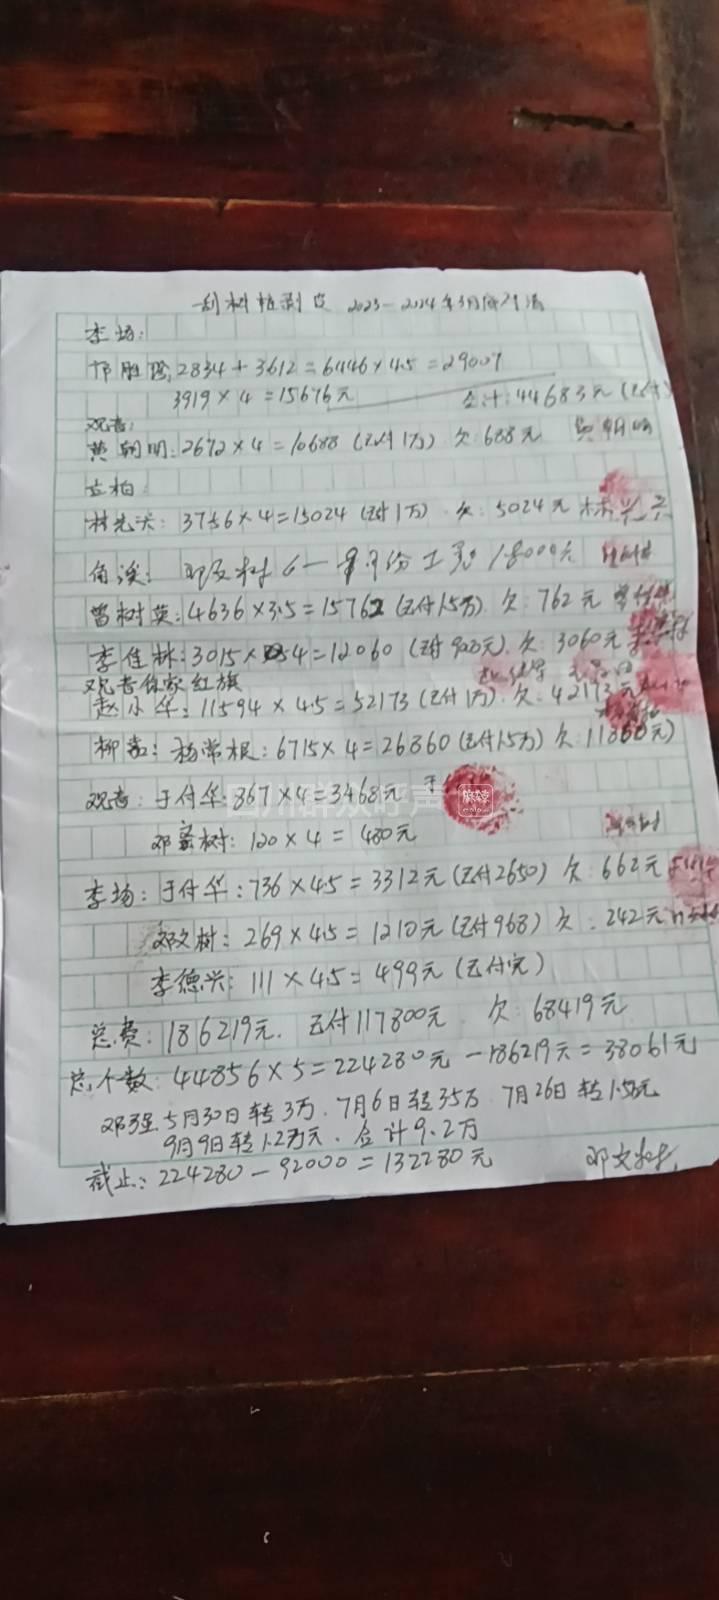 刮树桩剥皮 2023-2024年3月
李场:
2834+3612=6446×4.5=29007
3919×4=15676元 合计:44683元
观音:
黄朝明:2672×4=10688(已付1万)欠:688元 黄朝明
立柏:
林先兴:3756×4=15024(已付1万).欠:5024元
角溪: 工资18000元
曾树英:4636×3.5=15762(已付1.5万).欠:762元
李佳林:3015×4=12060(已付9000元).欠:3060元
观音伍家红旗
赵小华:11594×4.5=52173(已付1万).欠:42173元
柳嘉:杨常根:6715×4=26860(已付1.5万)欠:11860元)
观音:于付华:867×4=3468元
邓蜜树:120×4=480元
李场:于付华:736×4.5=3312元(已付2650)欠:662元
邓文树:269×4.5=1210元(已付968)欠:242元
李德兴:111×4.5=499元(已付完)
总费:186219元. 已付117800元. 欠:68419元
总个数:44856×5=224280元-186219元=38061元
邓强.5月30日转3万.7月6日转3.5万 7月26日转1.5万元
9月9日转1.2万元.合计9.2万
截止:224280-92000=132280元 邓文树
四川群众呼声
麻辣